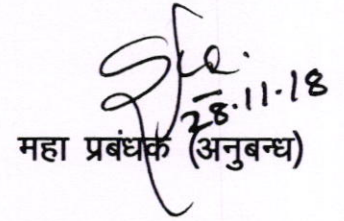 28.11.18
महा प्रबंधक (अनुबन्ध)